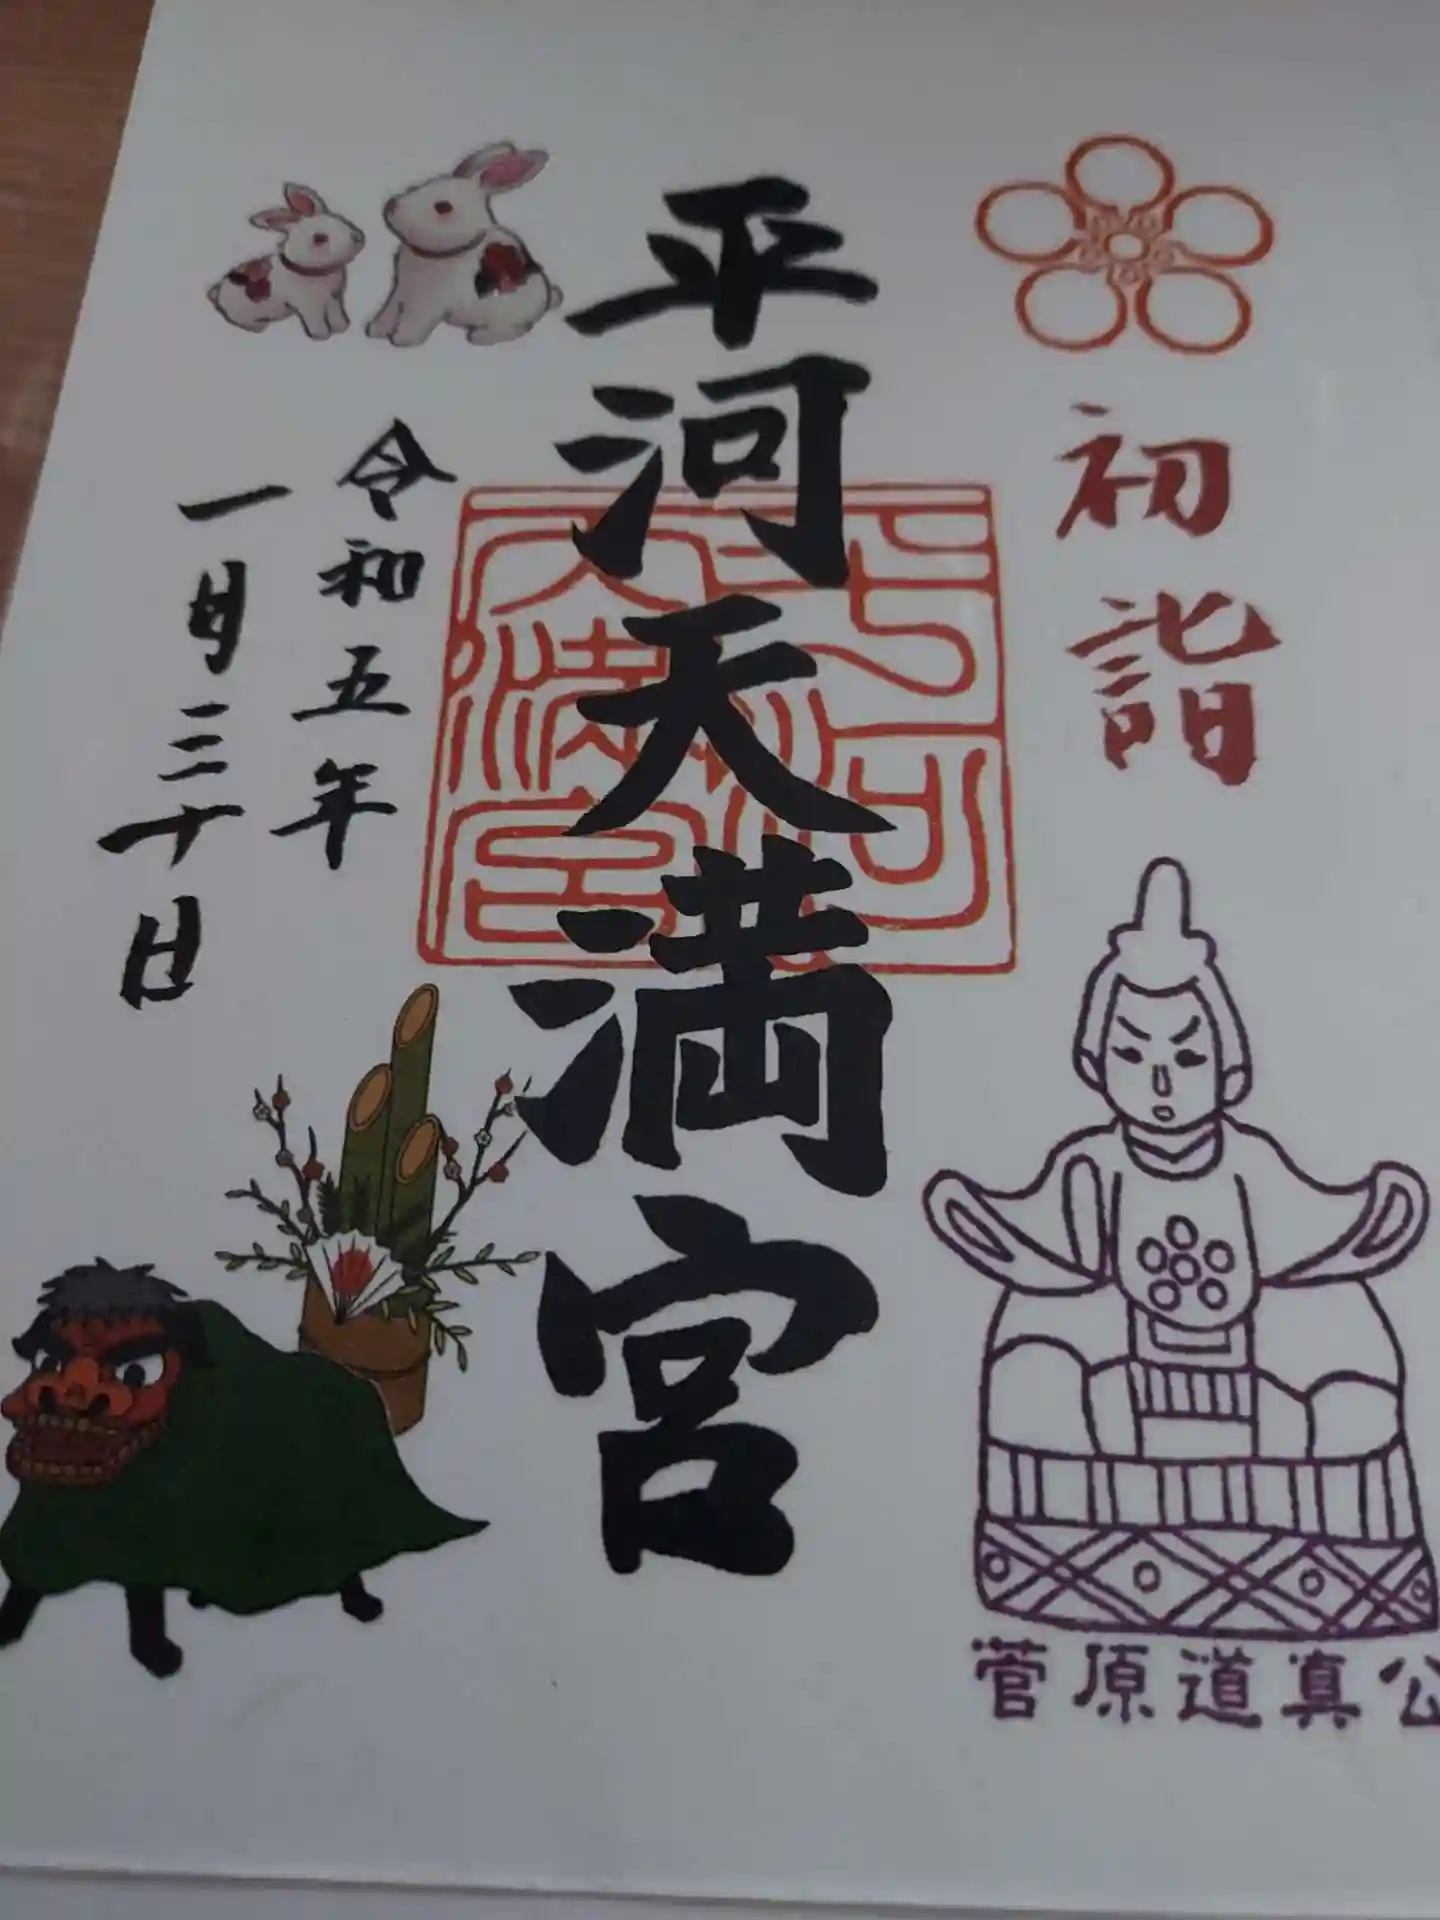 初詣
平河天満宮
令和五年
一月三十日
菅原道真公
平河
天満宮